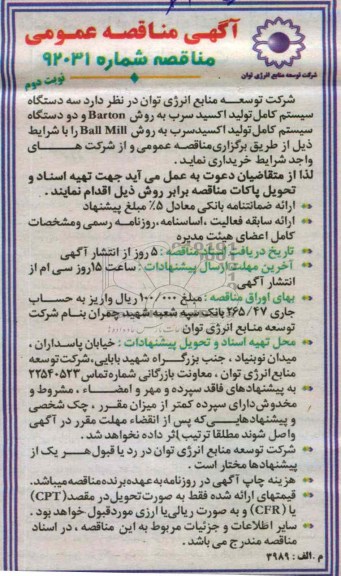 آگهی مناقصه عمومی
مناقصه شماره ۹۲۰۳۱
نوبت دوم
شرکت توسعه منابع انرژی توان
شرکت توسعـــه منابع انرژی توان در نظر دارد سه دستگاه
سیستم کامل تولید اکسید سرب به روش Barton و دو دستگاه
سیستم کامل تولید اکسیدسرب به روش Ball Mill را با شرایط
ذیل از طریق برگزاری مناقصه عمومی و از شرکت های
واجد شرایط خریداری نماید.
لذا از متقاضیان دعوت به عمل می آید جهت تهیه اسناد و
تحویل پاکات مناقصه برابر روش ذیل اقدام نمایند.
ارائه ضمانتنامه بانکی معادل ۵٪ مبلغ پیشنهاد
ارائه سابقه فعالیت ، اساسنامه ، روزنامه رسمی ومشخصات
کامل اعضای هیئت مدیره
تاریخ دریافت اسناد مناقصه : ۵ روز از انتشار آگهی
آخرین مهلت ارسال پیشنهادات : ساعت ۱۵ روز سی ام از
انتشار آگهی
بهای اوراق مناقصه : مبلغ ۱۰۰/۰۰۰ ریال واریز به حساب
جاری ۲۶۵/۴۷ بانک سپه شعبه شهید چمران بنـام شرکت
توسعه منابع انرژی توان
محل تهیه اسناد و تحویل پیشنهادات : خیابان پاسداران ،
میدان نوبنیاد ، جنب بزرگراه شهید بابایی، شرکت توسعه
منابع انرژی توان ، معاونت بازرگانی شماره تماس ۲۲۵۴۰۵۲۳
به پیشنهادهای فاقد سپرده و مهر و امضـاء ، مشروط و
مخدوش دارای سپرده کمتر از میزان مقرر ، چک شخصی
و پیشنهادهایـی که پس از انقضاء مهلت مقرر در آگهی
واصل شوند مطلقا ترتیب اثر داده نخواهد شد .
شرکت توسعه منابع انرژی توان در رد یا قبول هر یک از
پیشنهادها مختار است .
هزینه چاپ آگهی در روزنامه به عهده برنده مناقصه میباشد.
قیمتهای ارائه شده فقط به صورت تحویل در مقصد (CPT)
یا (CFR) و به صورت ریالی یا ارزی مورد قبول خواهد بود .
سایر اطلاعات و جزئیات مربوط به این مناقصه ، در اسناد
مناقصه مندرج می باشد .
م .الف : ۳۹۸۹